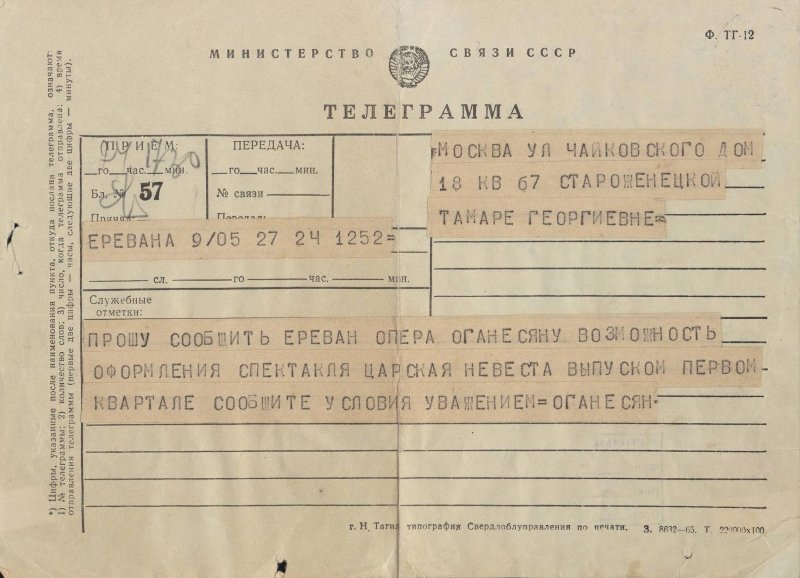 Ф. ТГ-12
МИНИСТЕРСТВО СВЯЗИ СССР
ТЕЛЕГРАММА
ПРИЕМ:
го час. мин.
Бл. № 57
Принял:
ПЕРЕДАЧА:
го час. мин.
№ связи
Передал:
МОСКВА УЛ ЧАЙКОВСКОГО ДОМ
18 КВ 67 СТАРОШЕНЕЦКОЙ
ТАМАРЕ ГЕОРГИЕВНЕ=
ЕРЕВАНА 9/05 27 24 1252=
сл. го час. мин.
Служебные
отметки:
ПРОШУ СООБШИТЬ ЕРЕВАН ОПЕРА ОГАНЕСЯНУ ВОЗМОЖНОСТЬ
ОФОРМЛЕНИЯ СПЕКТАКЛЯ ЦАРСКАЯ НЕВЕСТА ВЫПУСКОМ ПЕРВОМ
КВАРТАЛЕ СООБШИТЕ УСЛОВИЯ УВАШЕНИЕМ=ОГАНЕСЯН
*) Цифры, указанные после наименования пункта, откуда послана телеграмма, означают:
1) № телеграммы; 2) количество слов; 3) число, когда телеграмма отправлена; 4) время
отправления телеграммы (первые две цифры — часы, следующие две цифры — минуты).
г. Н. Тагил типография Свердлоблуправления по печати. З. 8632—65. Т.